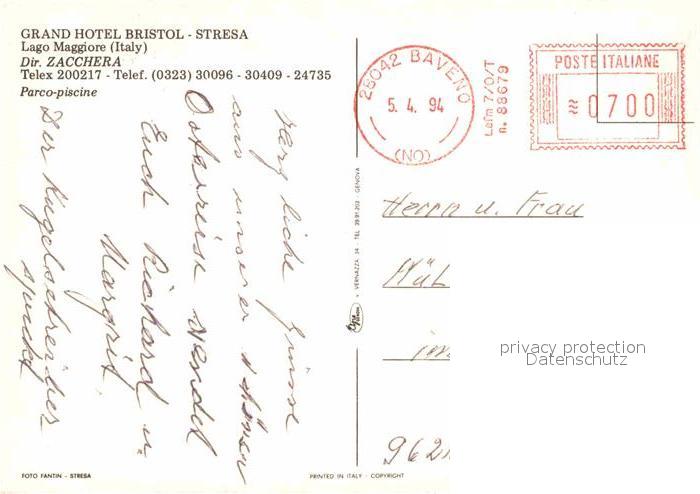 GRAND HOTEL BRISTOL - STRESA
Lago Maggiore (Italy)
Dir. ZACCHERA
Telex 200217 - Telef. (0323) 30096 - 30409 - 24735
Parco-piscine
28042 BAVENO
5. 4. 94
(NO)
Leim 7/0/T
n. 88679
POSTE ITALIANE
≈ 0700
Herzliche Grüsse
aus unserer schönen
Osterreise sendet
Euch Richard u.
Margrit
Der Kugelschreiber
spuckt
Herrn u. Frau
Hül
im
962
VERNAZZA, 34 - TEL. 39.91.202 - GENOVA
privacy protection
Datenschutz
FOTO FANTIN - STRESA
PRINTED IN ITALY - COPYRIGHT